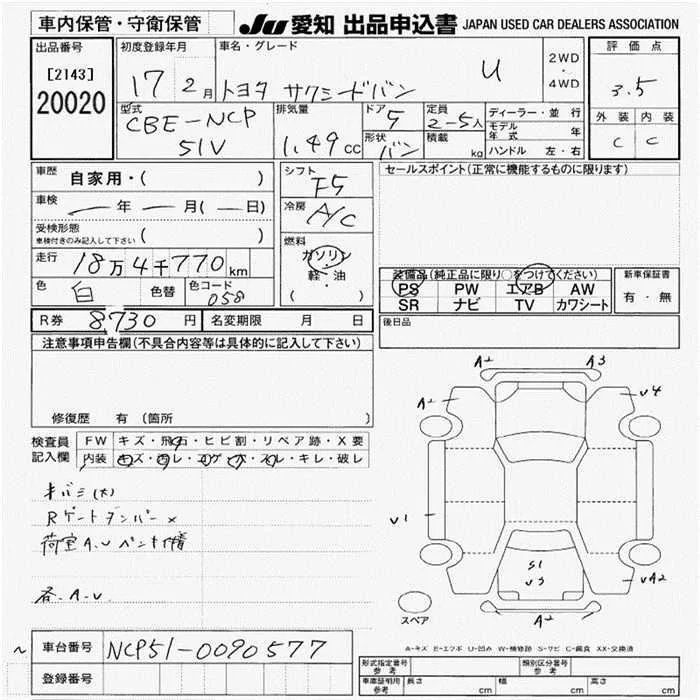 車内保管・守衛保管
JU 愛知 出品申込書 JAPAN USED CAR DEALERS ASSOCIATION
出品番号
[2143]
20020
初度登録年月
17 2月
車名・グレード
トヨタ サクシードバン U
2WD
・
4WD
評価点
3.5
外装 内装
C C
型式
CBE-NCP
51V
排気量
1.49cc
ドア
5
形状
バン
定員
2-5人
積載
kg
ディーラー・並行
モデル年式 年
ハンドル 左・右
車歴
自家用・( )
車検
ー年 ー月(ー日)
受検形態
車検付きのみ記入して下さい ( )
走行
18万4千770km
色
白
色替
色コード
058
シフト
F5
冷房
A/C
燃料
ガソリン
・
軽・油
・
( )
セールスポイント(正常に機能するものに限ります)
装備品(純正品に限り○をつけてください)
PS PW エアB AW
SR ナビ TV カワシート
新車保証書
有・無
後日品
R券 8730円 名変期限 月 日
注意事項申告欄(不具合内容等は具体的に記入して下さい)
修復歴 有 (箇所 )
検査員
記入欄
FW キズ・飛石・ヒビ割・リペア跡・X要
内装 キズ・汚レ・コゲ・穴・スレ・キレ・破レ
キバミ(大)
Rゲートダンパー×
荷室A.U ペンキ付着
各-A-U
A2 A3
A2 U4
U1
S1
U3
UA2
A2
スペア
A-キズ E-エクボ U-凹み W-補修跡 S-サビ C-腐食 XX-交換済
~
車台番号 NCP51-0090577
登録番号
形式指定番号
参考
類別区分番号
参考
車庫証明用
参考
長さ cm 幅 cm 高さ cm